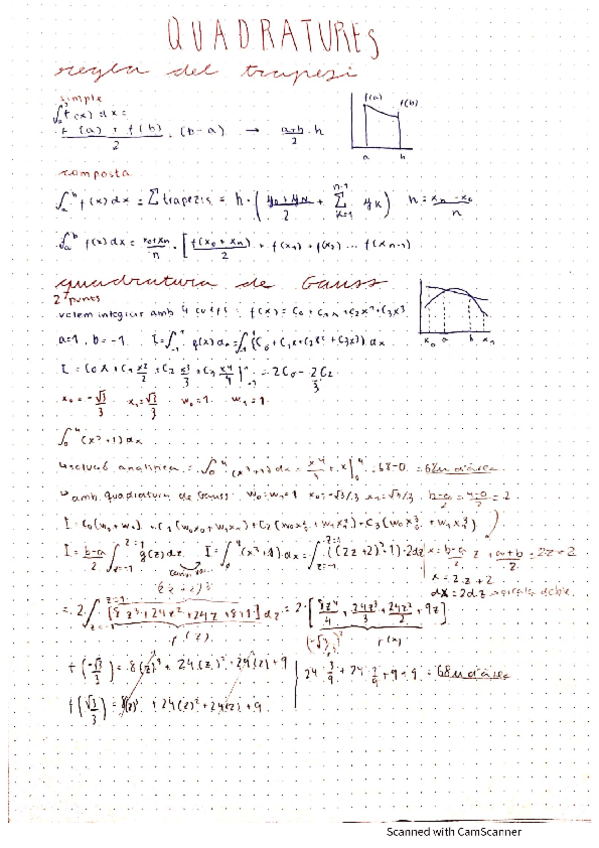 QUADRATURES
regla del trapezi
simple
∫ f(x) dx =
f(a) + f(b) / 2 · (b-a) → a+b/2 · h
f(a) f(b)
a b
composta
∫ₐᵇ f(x) dx = Σ trapezis = h · ( y₀+yN / 2 + Σ yk ) h = xn - x₀ / n
n-1
k=1
∫ₐᵇ f(x) dx = · [ f(x₀+xn) / 2 + f(x₁) + f(x₂) ... f(xn-1)
quadratura de Gauss
2 punts
volem integrar amb f(x) = C₀ + C₁x + C₂x² + C₃x³
x₀ a b x₁
a=1, b=-1
I = C₀x + C₁ x²/2 + C₂ x³/3 + C₃ x⁴/4 ]₋₁ = 2C₀ - 2/3 C₂
x₀ = -√3/3 x₁ = √3/3 w₀=1 w₁=1
∫₀⁴ (x³+1) dx
analítica = ∫₀⁴ (x³+1) dx = x⁴/4 + x |₀⁴ = 68-0 = 68
amb quadratura de Gauss: w₀=w₁=1 x₀=-√3/3 x₁=√3/3 b-a/2 = 4-0/2 = 2
I = C₀(w₀+w₁) + C₁(w₀x₀+w₁x₁) + C₂(w₀x₀²+w₁x₁²) + C₃(w₀x₀³+w₁x₁³)
I = b-a/2 ∫ g(z) dz I = ∫₀⁴ (x³+1) dx = ∫ ((2z+2)³+1)·2dz x = b-a/2 z + a+b/2 = 2z+2
x = 2·z+2
dx = 2dz
= 2 ∫ [8z³+24z²+24z+8+1] dz = 2 · [ 8z⁴/4 + 24z³/3 + 24z²/2 + 9z ]
f(z) f(x)
f(-√3/3) = 8(z)³ + 24(z)² + 24(z) + 9
24 · 3/9 + 24 · 3/9 + 9 + 9 = 68
f(√3/3) = 8(z)³ + 24(z)² + 24(z) + 9
Scanned with CamScanner